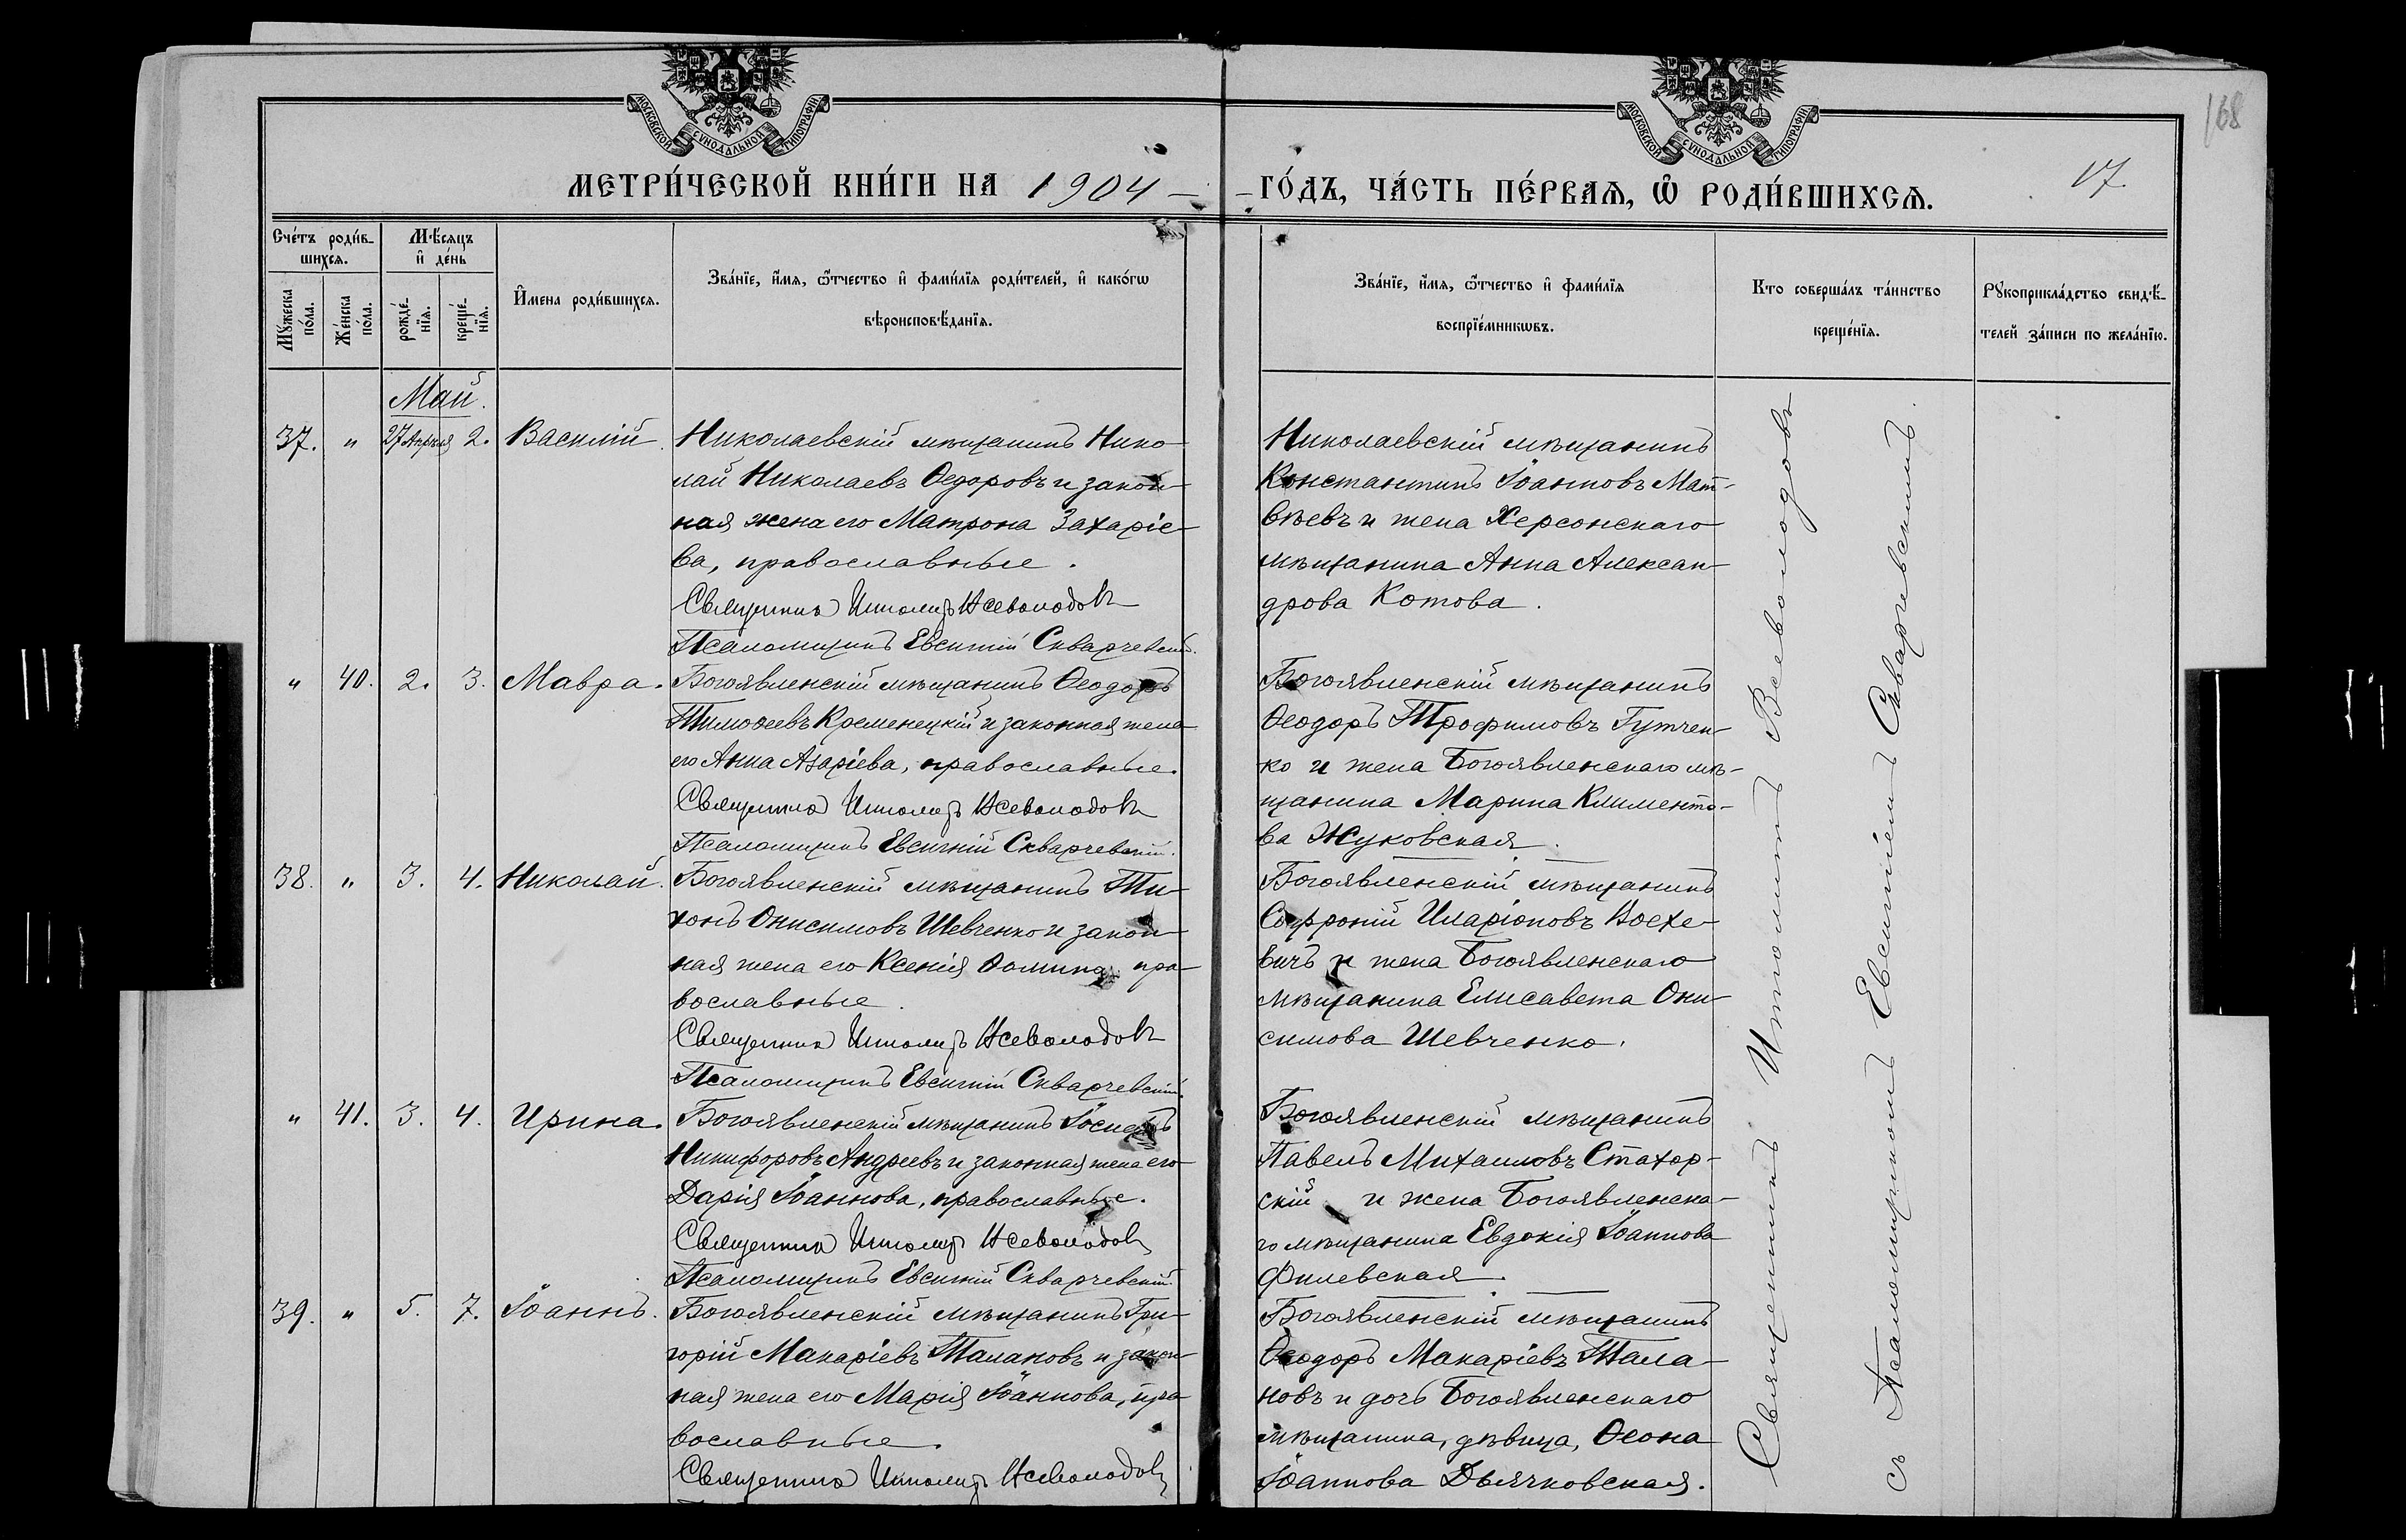 МОСКОВСКОЙ СѴНОДАЛЬНОЙ ТИПОГРАФІИ
МОСКОВСКОЙ СѴНОДАЛЬНОЙ ТИПОГРАФІИ
168
МЕТРИ́ЧЕСКОЙ КНИ́ГИ НА 1904 — — ГО́ДЪ, ЧА́СТЬ ПЕ́РВАѦ, Ѡ РОДИ́ВШИХСѦ.
17.
Сче́тъ роди́в-
шихсѧ.
Мꙋжеска
по́ла.
Же́нска
по́ла.
Мѣ́сѧцъ
и҆ де́нь
рожде́-
нїѧ.
креще́-
нїѧ.
И҆мена роди́вшихсѧ.
Зва́нїе, и҆́мѧ, ѻ҆́тчество и҆ фами́лїѧ роди́телей, и҆ како́гѡ
вѣроисповѣ́данїѧ.
Зва́нїе, и҆́мѧ, ѻ҆́тчество и҆ фами́лїѧ
воспрїе́мникѡвъ.
Кто соверша́лъ та́инство
креще́нїѧ.
Рꙋкоприкла́дство свидѣ́-
телей за́писи по жела́нїю.
Май.
37. " 27 Апрѣля 2. Василій.
Николаевскій мѣщанинъ Нико-
лай Николаевъ Ѳедоровъ и закон-
ная жена его Матрона Захаріе-
ва, православные.
Священникъ Ипполитъ Всеволодовъ
Псаломщикъ Евсигній Скварчевскій.
Николаевскій мѣщанинъ
Константинъ Іоанновъ Мат-
вѣевъ и жена Херсонскаго
мѣщанина Анна Алексан-
дрова Котова.
" 40. 2. 3. Мавра.
Богоявленскій мѣщанинъ Ѳеодоръ
Тимоѳеевъ Кременецкій и законная жена
его Анна Азаріева, православные.
Священникъ Ипполитъ Всеволодовъ
Псаломщикъ Евсигній Скварчевскій.
Богоявленскій мѣщанинъ
Ѳеодоръ Трофимовъ Гутчен-
ко и жена Богоявленскаго мѣ-
щанина Марина Климента-
ва Жуковская.
38. " 3. 4. Николай.
Богоявленскій мѣщанинъ Ти-
хонъ Онисимовъ Шевченко и закон-
ная жена его Ксенія Ѳомина, пра-
вославные.
Священникъ Ипполитъ Всеволодовъ
Псаломщикъ Евсигній Скварчевскій.
Богоявленскій мѣщанинъ
Софроній Иларіоновъ Воехе-
вичъ и жена Богоявленскаго
мѣщанина Елисавета Они-
симова Шевченко.
" 41. 3. 4. Ирина.
Богоявленскій мѣщанинъ Іосифъ
Никифоровъ Андреевъ и законная жена его
Дарія Іоаннова, православные.
Священникъ Ипполитъ Всеволодовъ
Псаломщикъ Евсигній Скварчевскій.
Богоявленскій мѣщанинъ
Павелъ Михаиловъ Стахор-
скій и жена Богоявленска-
го мѣщанина Евдокія Іоаннова
Филевская.
39. " 5. 7. Іоаннъ.
Богоявленскій мѣщанинъ Гри-
горій Макаріевъ Талановъ и закон-
ная жена его Марія Іоаннова, пра-
вославные.
Священникъ Ипполитъ Всеволодовъ
Богоявленскій мѣщанинъ
Ѳеодоръ Макаріевъ Тала-
новъ и дочь Богоявленскаго
мѣщанина, дѣвица, Ѳеона
Іоаннова Дьячковская.
Священникъ Ипполитъ Всеволодовъ
съ Псаломщикомъ Евсигніемъ Скварчевскимъ.